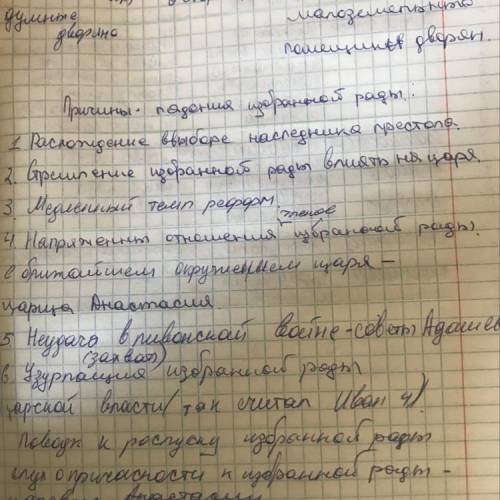 думные
дворяне
малоземельных
помещиков дворян.
Причины падения избранной рады:
1. Расхождение в выборе наследника престола.
2. Стремление избранной рады влиять на царя.
3. Медленный темп реформ.
членов
4. Напряженны отношения избранной рады.
с ближайшем окружением царя –
царица Анастасия.
5 Неудача в ливонской войне – советы Адашев
(захват)
6. Узурпация избранной рады
царской власти (так считал Иван 4).
Поводк к роспуску избранной рады
слух о причасности к избранной рады –